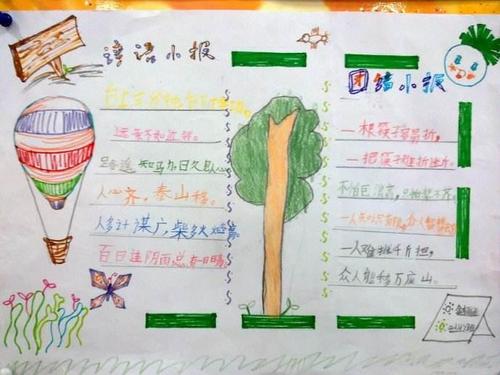 谚语小报
远亲不如近邻。
路遥知马力日久见人心
人心齐，泰山移。
人多计谋广，柴多火焰高。
百日连阴雨总有一日晴
团结小报
一根筷子容易折，
一把筷子难折断。
不怕巨浪高，只怕桨不齐。
一人难挑千斤担，
众人能移万座山。